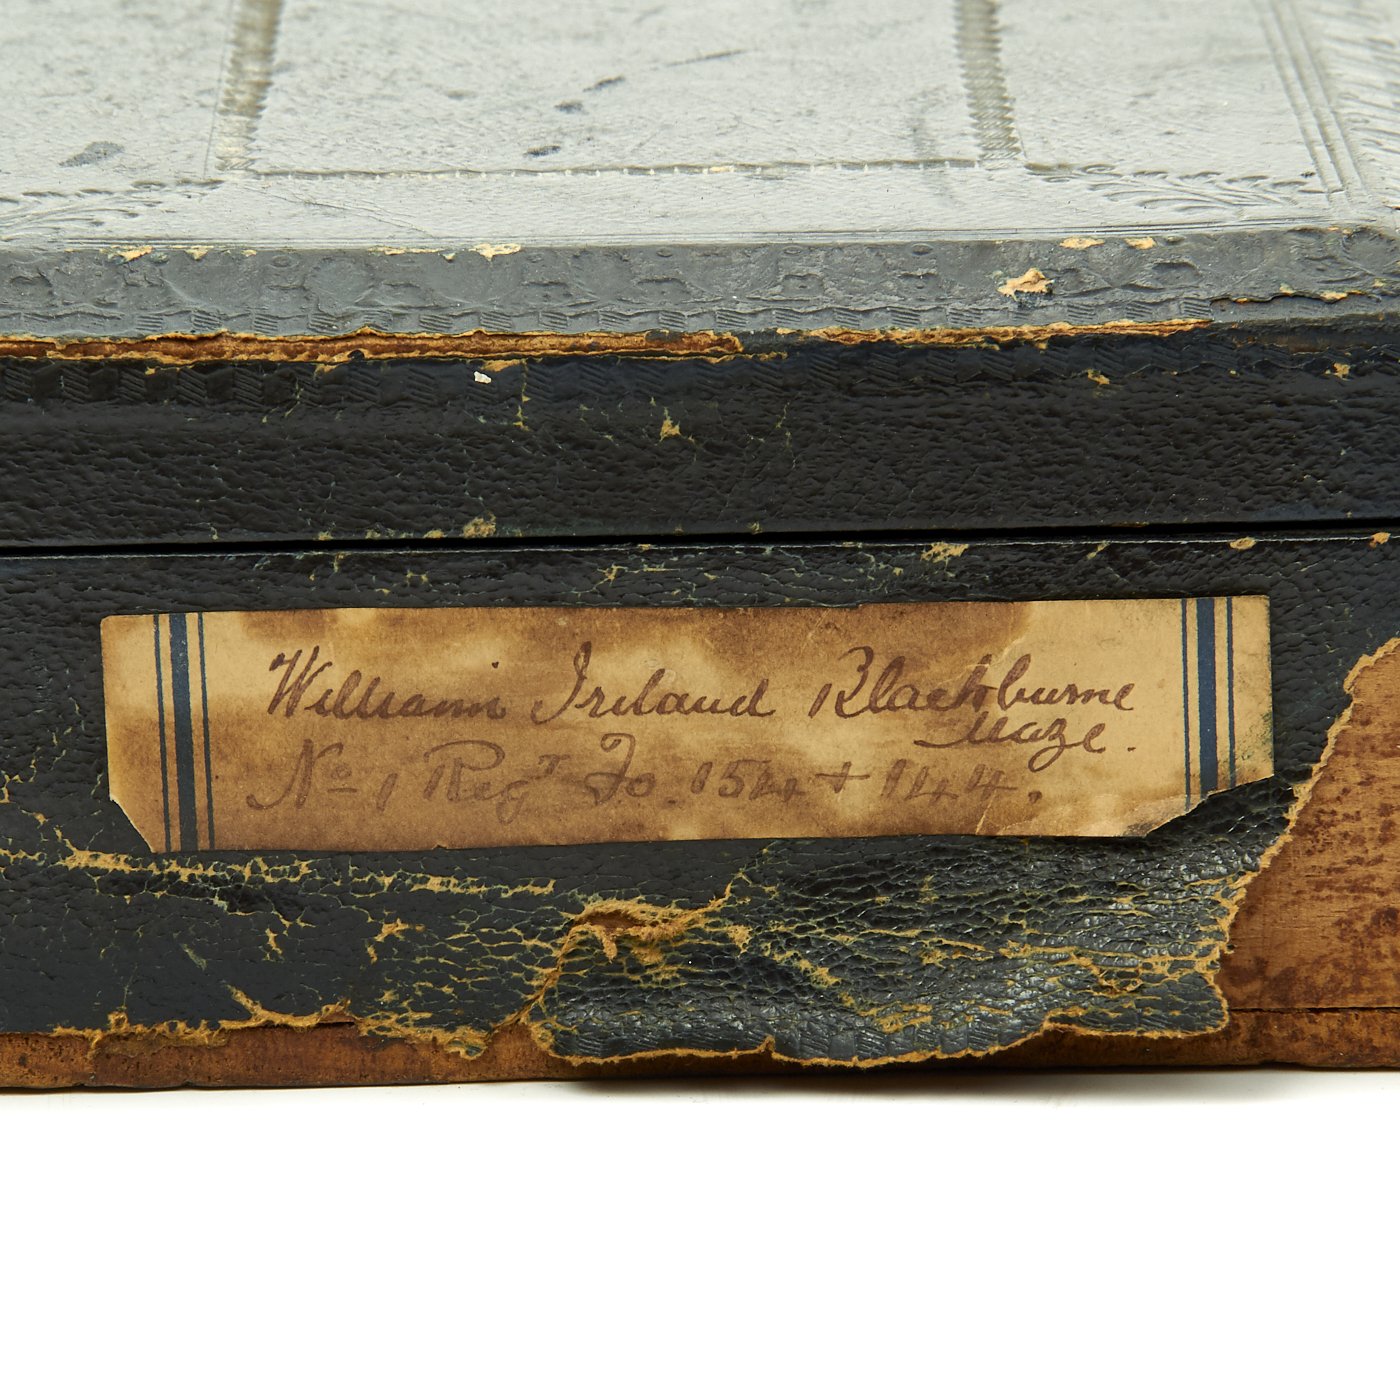 William Ireland Blackburne
Maze.
No. 1 Regr Fo. 154 + 144.